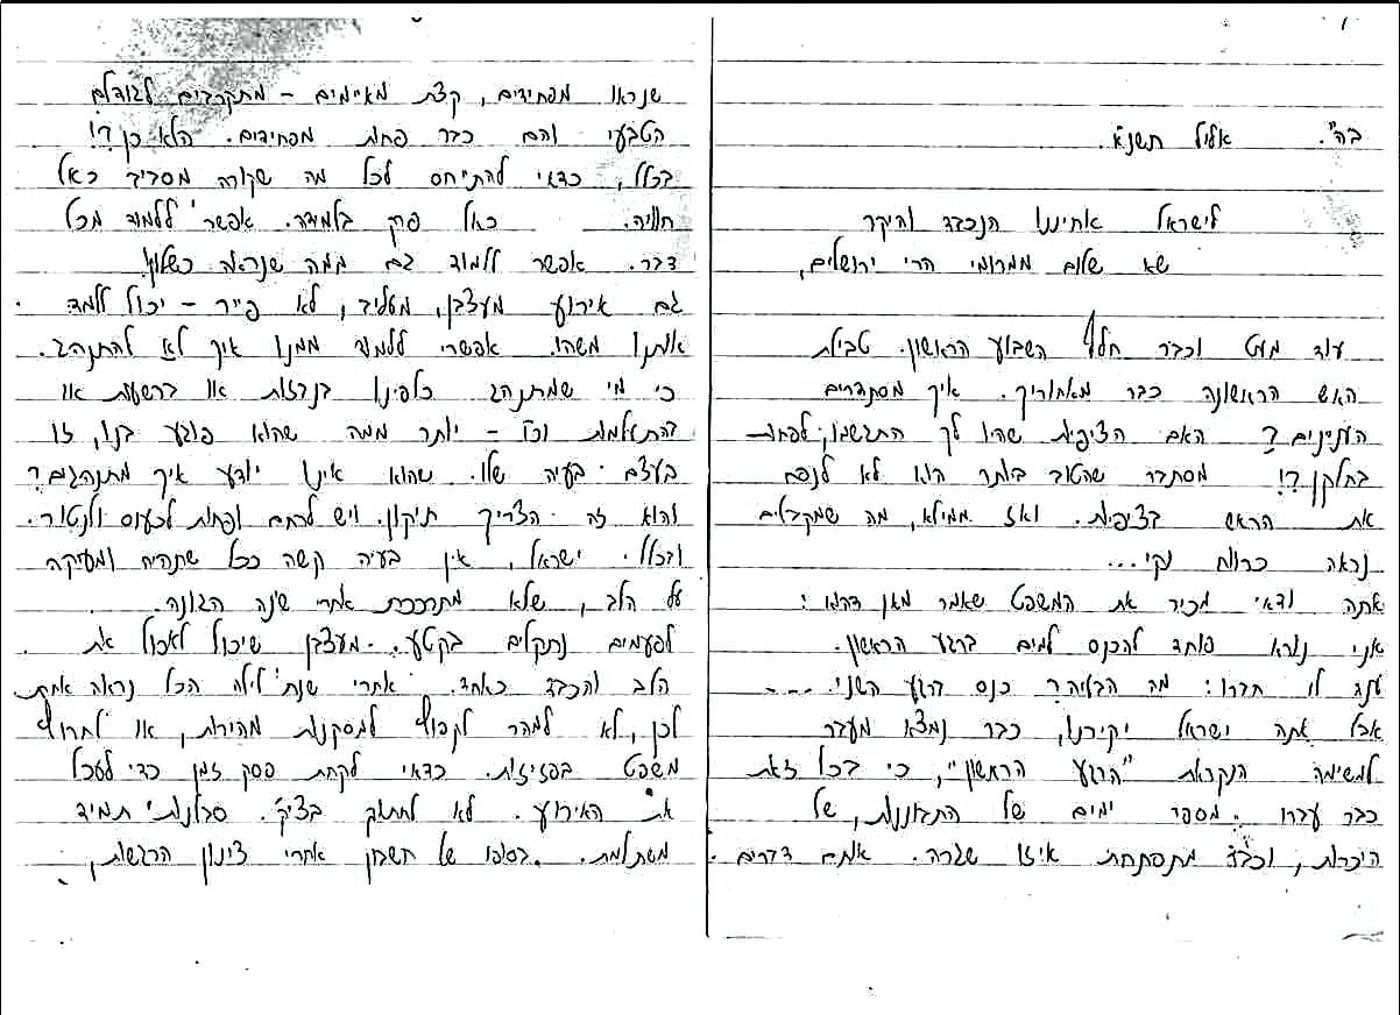 בה". אלול תשנ"א.
לישראל אחיינו הנכבד והיקר
שא שלום ממרומי הרי ירושלים,
עוד מעט וכבר חלף השבוע הראשון. טבילת
האש הראשונה כבר מאחוריך. איך מסתדרים
העניינים? האם הציפיות שהיו לך התגשמו, לפחות
בחלקן?! מסתבר שהטוב ביותר הוא לא לנפח
את הראש בציפיות. ואז ממילא, מה שמקבלים
נראה כרווח נקי...
אתה ודאי מכיר את המשפט שאמר מאן דהוא:
אני נורא פוחד להכנס למים ברגע הראשון.
ענה לו חברו: מה הבעיה? כנס ברגע השני. ....
אבל אתה ישראל יקירנו, כבר נמצא מעבר
למשימה הנקראת "הרגע הראשון", כי בכל זאת
כבר עברו מספר ימים של התבוננות, של
היכרות, וכבר מתפתחת איזו שגרה. אותם דברים
שנראו מפחידים, קצת מאיימים – מתקרבים לגודלם
הטבעי והם כבר פחות מפחידים. הלא כן?!
בכלל, כדאי להתייחס לכל מה שקורה מסביב כאל
חוויה. כאל פרק בלמידה. אפשר ללמוד מכל
דבר. אפשר ללמוד גם ממה שנראה כשלון.
גם אירוע מעצבן, מעליב, לא פייר – יכול ללמד
אותנו משהו. אפשר ללמוד ממנו איך לא להתנהג.
כי מי שמתנהג כלפינו בגסות או ברשעות או
בהתעלמות וכו' – יותר ממה שהוא פוגע בנו, זו
בעצם בעיה שלו. שהוא אינו יודע איך מתנהגים?
והוא זה הצריך תיקון. ויש לרחם ופחות לכעוס ולנטור.
ובכלל, ישראל, אין בעיה קשה ככל שתהיה ומעיקה
על הלב, שלא מתרככת אחרי שינה הגונה.
לפעמים נתקלים בקטע מעצבן שיכול לאכול את
הלב והכבד כאחד. אחרי שנת לילה הכל נראה אחרת.
לכן, לא למהר לקפוץ למסקנות מהירות, או לחרוץ
משפט בפזיזות. כדאי לקחת פסק זמן כדי לעכל
את האירוע. לא לחתוך בציק. סבלנות תמיד
משתלמת. בסופו של חשבון אחרי צינון הרגשות,